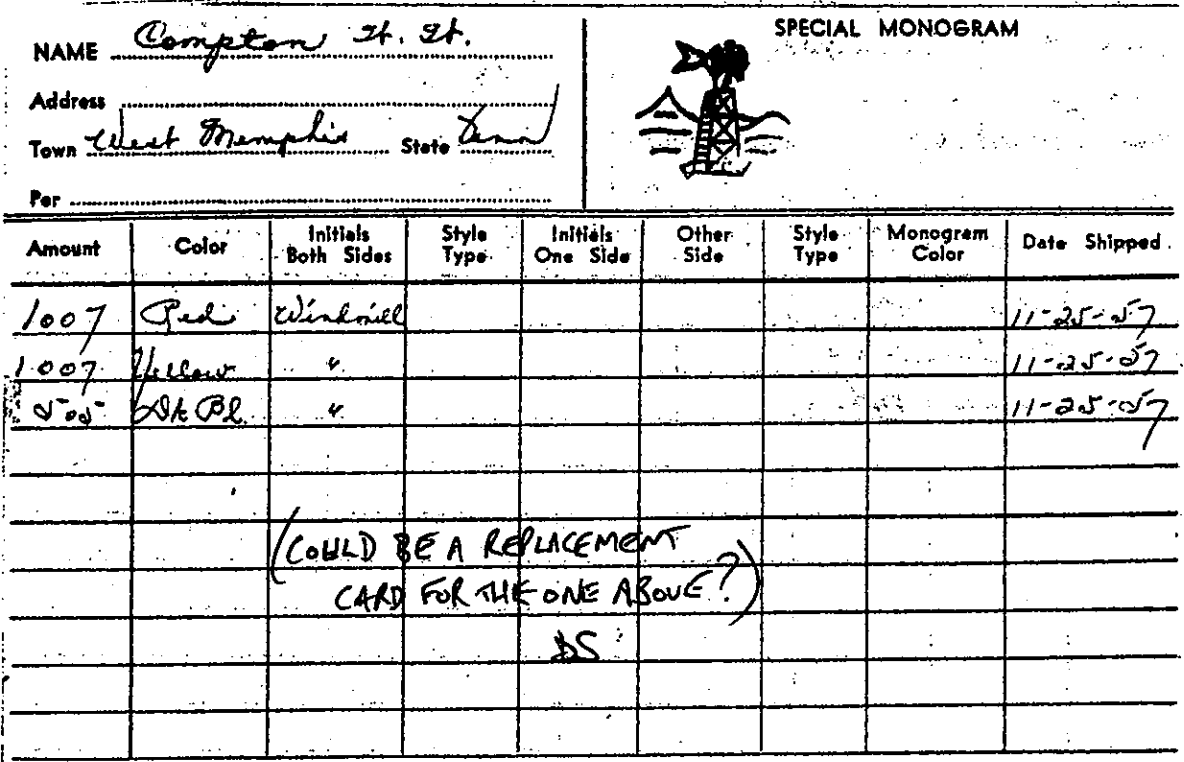 SPECIAL MONOGRAM
NAME Compton St. St.
Address
Town West Memphis State Tenn
Per
Amount Color Initials Both Sides Style Type Initials One Side Other Side Style Type Monogram Color Date Shipped
1007 Red Windmill 11-25-57
1007 Yellow " 11-25-57
505 Dk Bl. " 11-25-57
(COULD BE A REPLACEMENT
CARD FOR THE ONE ABOVE?)
DS